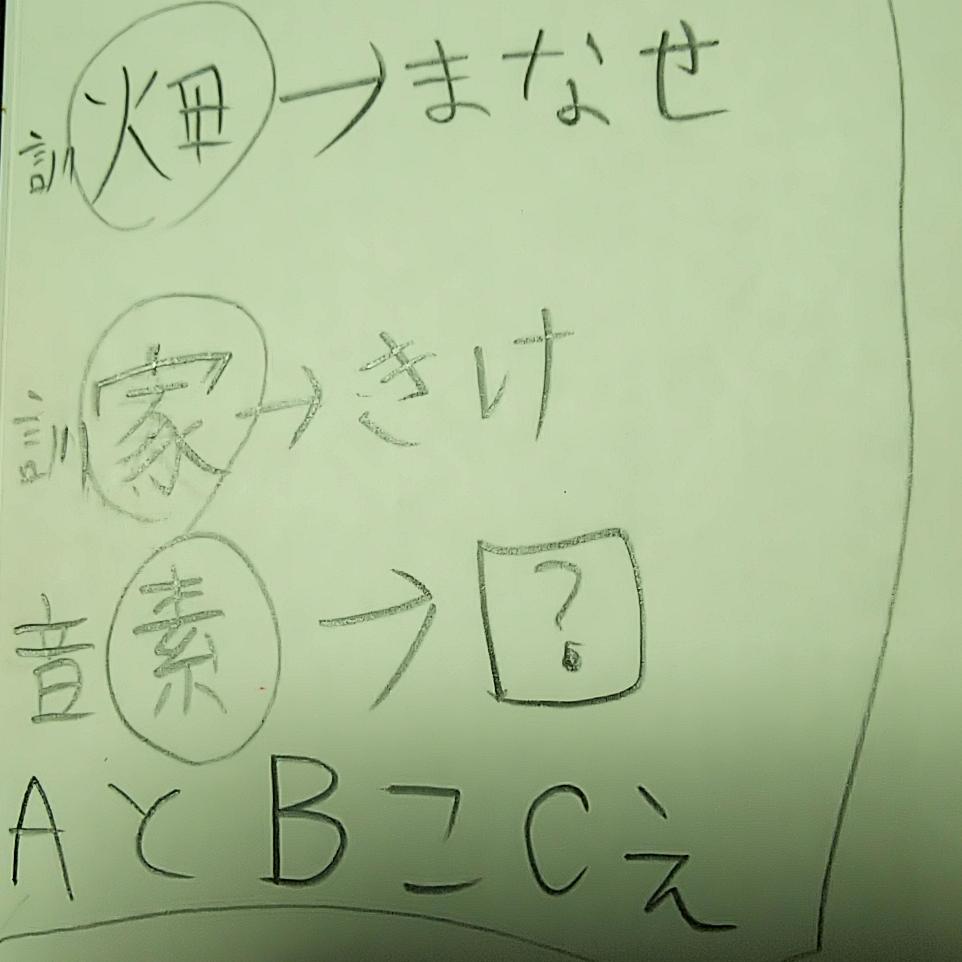 訓 畑→まなせ
訓 家→きけ
音 素→?
AとBこCえ